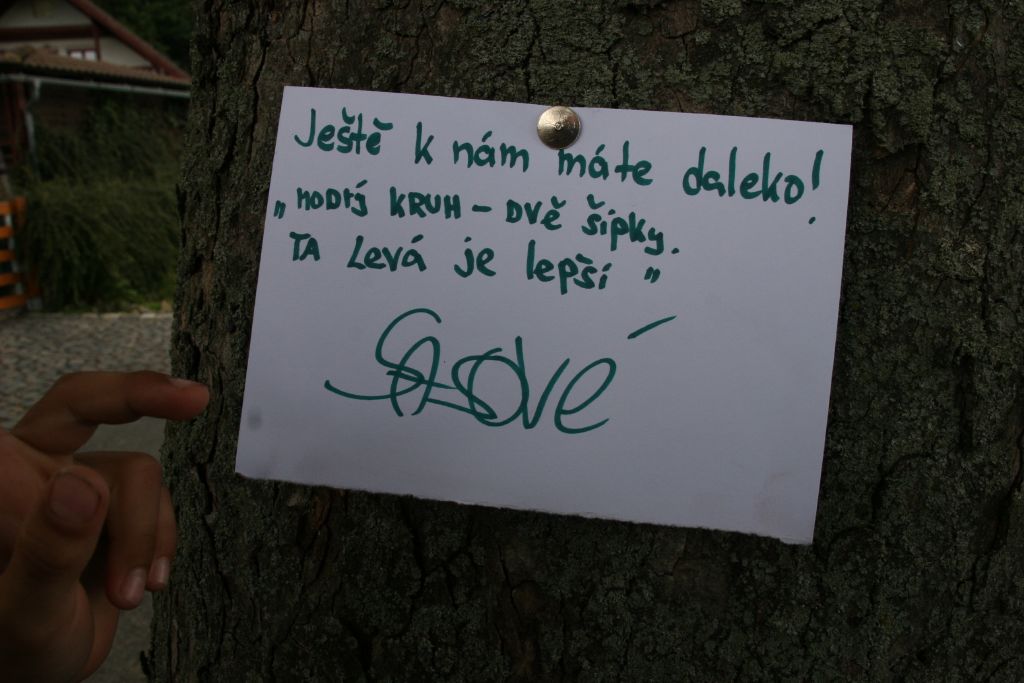 Ještě k nám máte daleko!
„ MODRÝ KRUH – DVĚ šipky.
TA Levá je lepší "